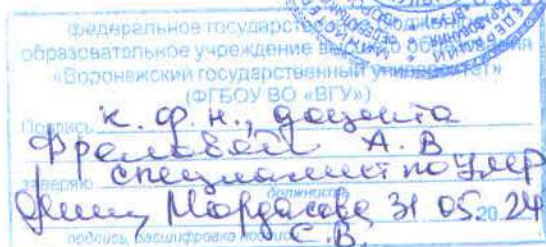 федеральное государственное
образовательное учреждение высшего образования
«Воронежский государственный университет»
(ФГБОУ ВО «ВГУ»)
Подпись к. ф. н., доцента
Фроловой А. В
заверяю специалист по УМР
должность
Мордасова 31 05.2024
С. В.
подпись, расшифровка подписи